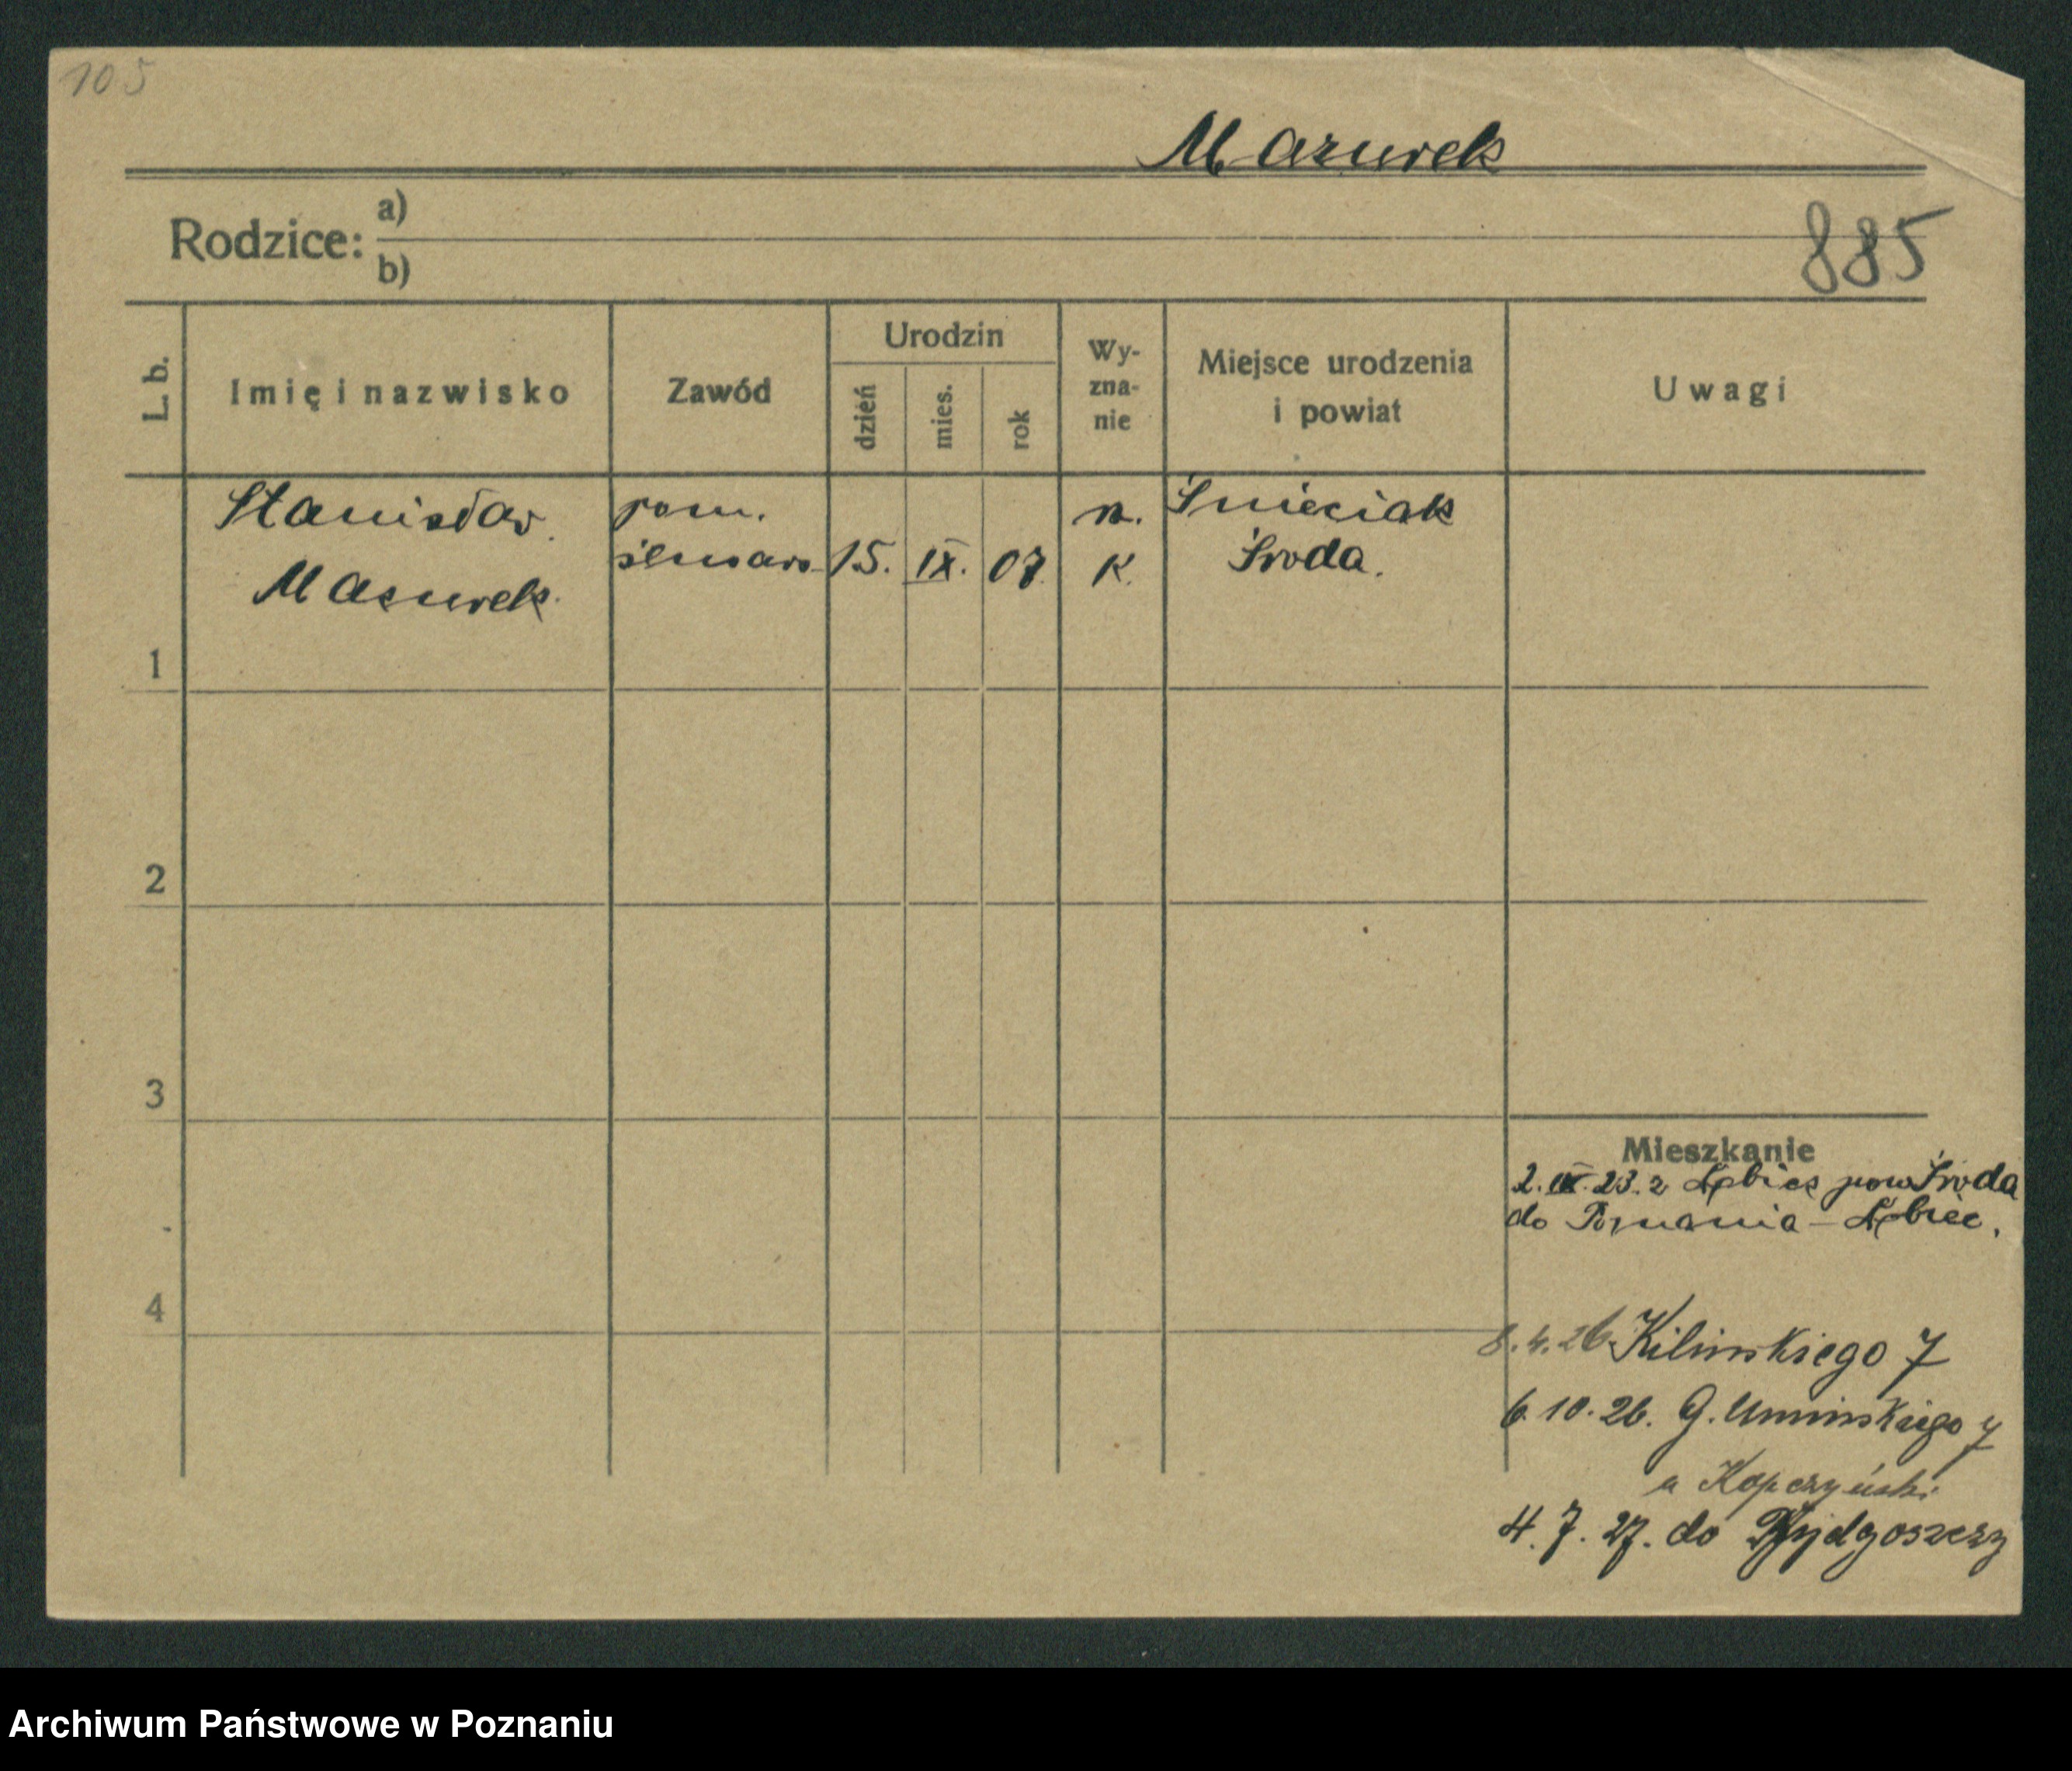 105
Mazurek
Rodzice: a)
b)
885
L. b.
Imię i nazwisko
Zawód
Urodzin
dzień
mies.
rok
Wy-
zna-
nie
Miejsce urodzenia
i powiat
Uwagi
Stanisław
pom.
Śnieciak
Mazurek.
15. IX. 07.
K.
Środa.
1
2
3
4
Mieszkanie
2. IX. 23. z pow Środa
do Poznania –
8.4.26 Kilińskiego 7
6.10.26. G. Umińskiego 7
u Kopczyński
4.7.27. do Bydgoszczy
Archiwum Państwowe w Poznaniu